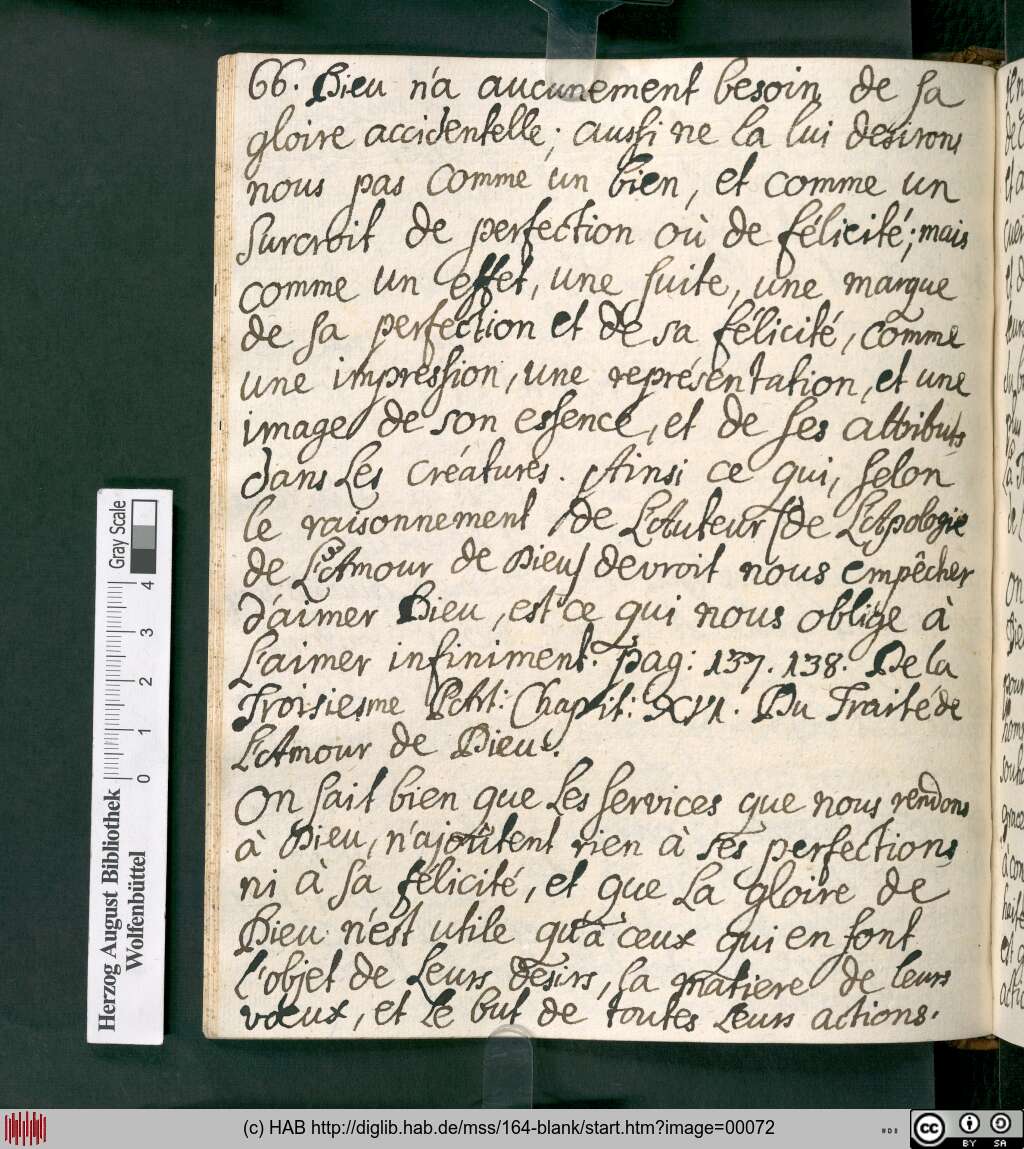 66. Dieu n'a aucunement besoin de sa
gloire accidentelle; aussi ne la lui desirons
nous pas comme un bien, et comme un
surcroit de perfection où de félicité; mais
comme un effet, une suite, une marque
de sa perfection et de sa félicité, comme
une impression, une représentation, et une
image de son essence, et de ses attributs
dans Les créatures. Ainsi ce qui, selon
le raisonnement /de L'Auteur /de L'Apologie
de L'Amour de Dieu/ devroit nous empêcher
d'aimer Dieu, est ce qui nous oblige à
L'aimer infiniment. pag: 137. 138. De la
Troisiesme PArt: Chapit: XVI. Du Traité de
L'Amour de Dieu.
On sait bien que Les services que nous rendons
à Dieu, n'ajoûtent rien à ses perfections
ni à sa félicité, et que La gloire de
Dieu n'est utile qu'à ceux qui en font
l'objet de Leurs désirs, la matiere de leurs
vœux, et Le but de toutes Leurs actions.
Gray Scale
4
3
2
1
0
Herzog August Bibliothek
Wolfenbüttel
(c) HAB http://diglib.hab.de/mss/164-blank/start.htm?image=00072
cc BY SA